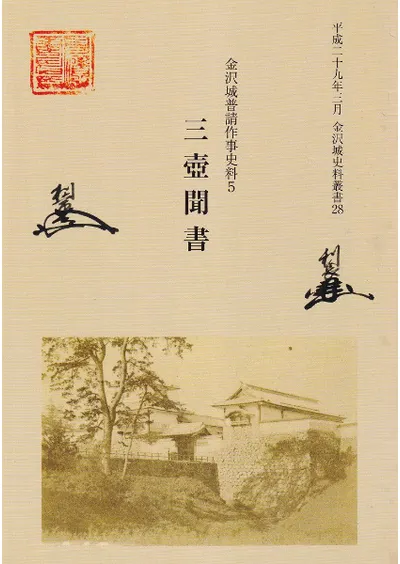 平成二十九年三月 金沢城史料叢書28
金沢城普請作事史料5
三壺聞書